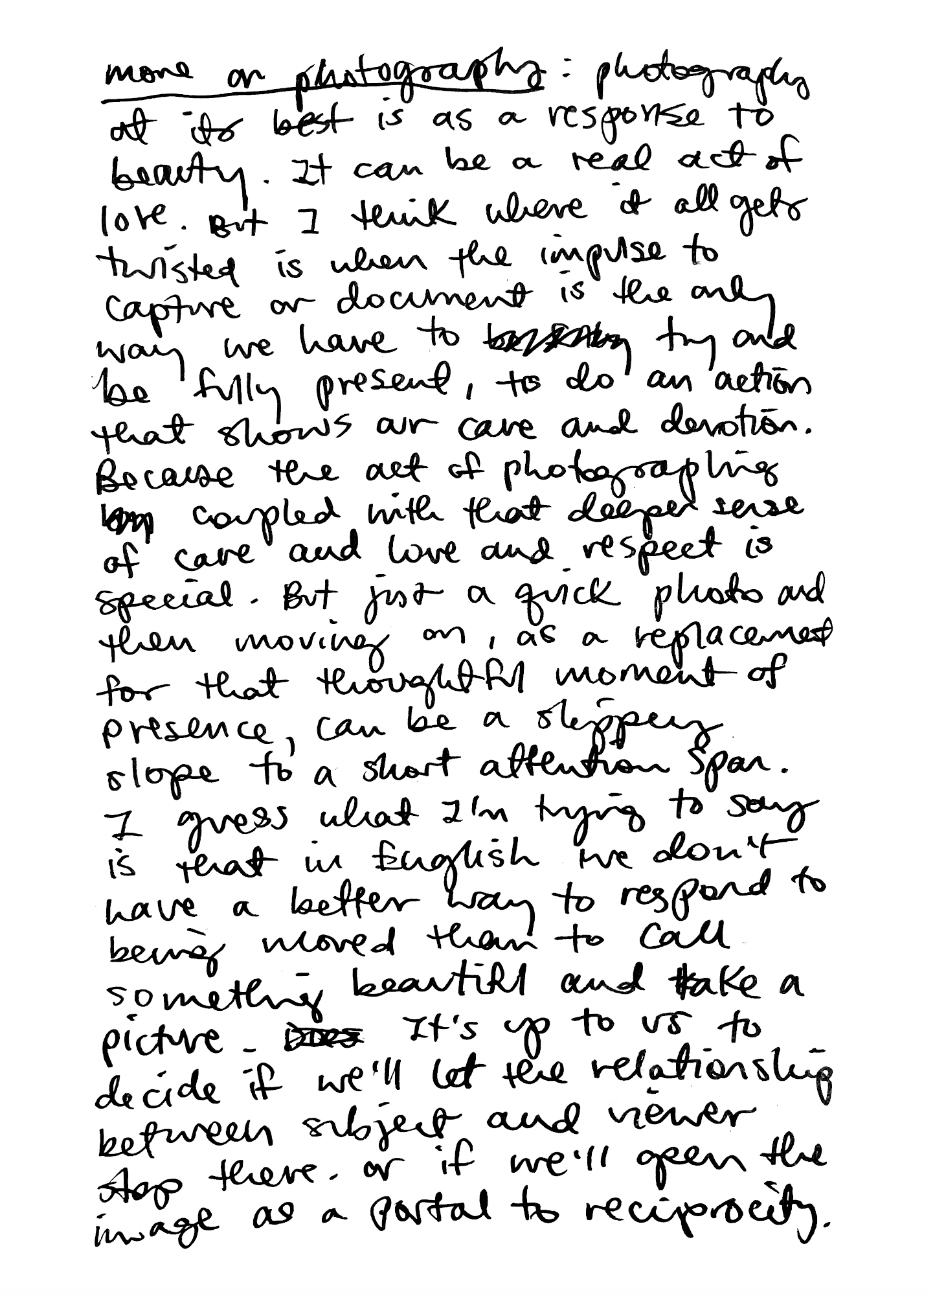 more on photography: photography
at its best is as a response to
beauty. It can be a real act of
love. But I think where it all gets
twisted is when the impulse to
capture or document is the only
way we have to try and
be fully present, to do an action
that shows our care and devotion.
Because the act of photographing
coupled with that deeper sense
of care and love and respect is
special. But just a quick photo and
then moving on, as a replacement
for that thoughtful moment of
presence, can be a slippery
slope to a short attention span.
I guess what I'm trying to say
is that in English we don't
have a better way to respond to
being moved than to call
something beautiful and take a
picture. It's up to us to
decide if we'll let the relationship
between subject and viewer
stop there. or if we'll open the
image as a portal to reciprocity.